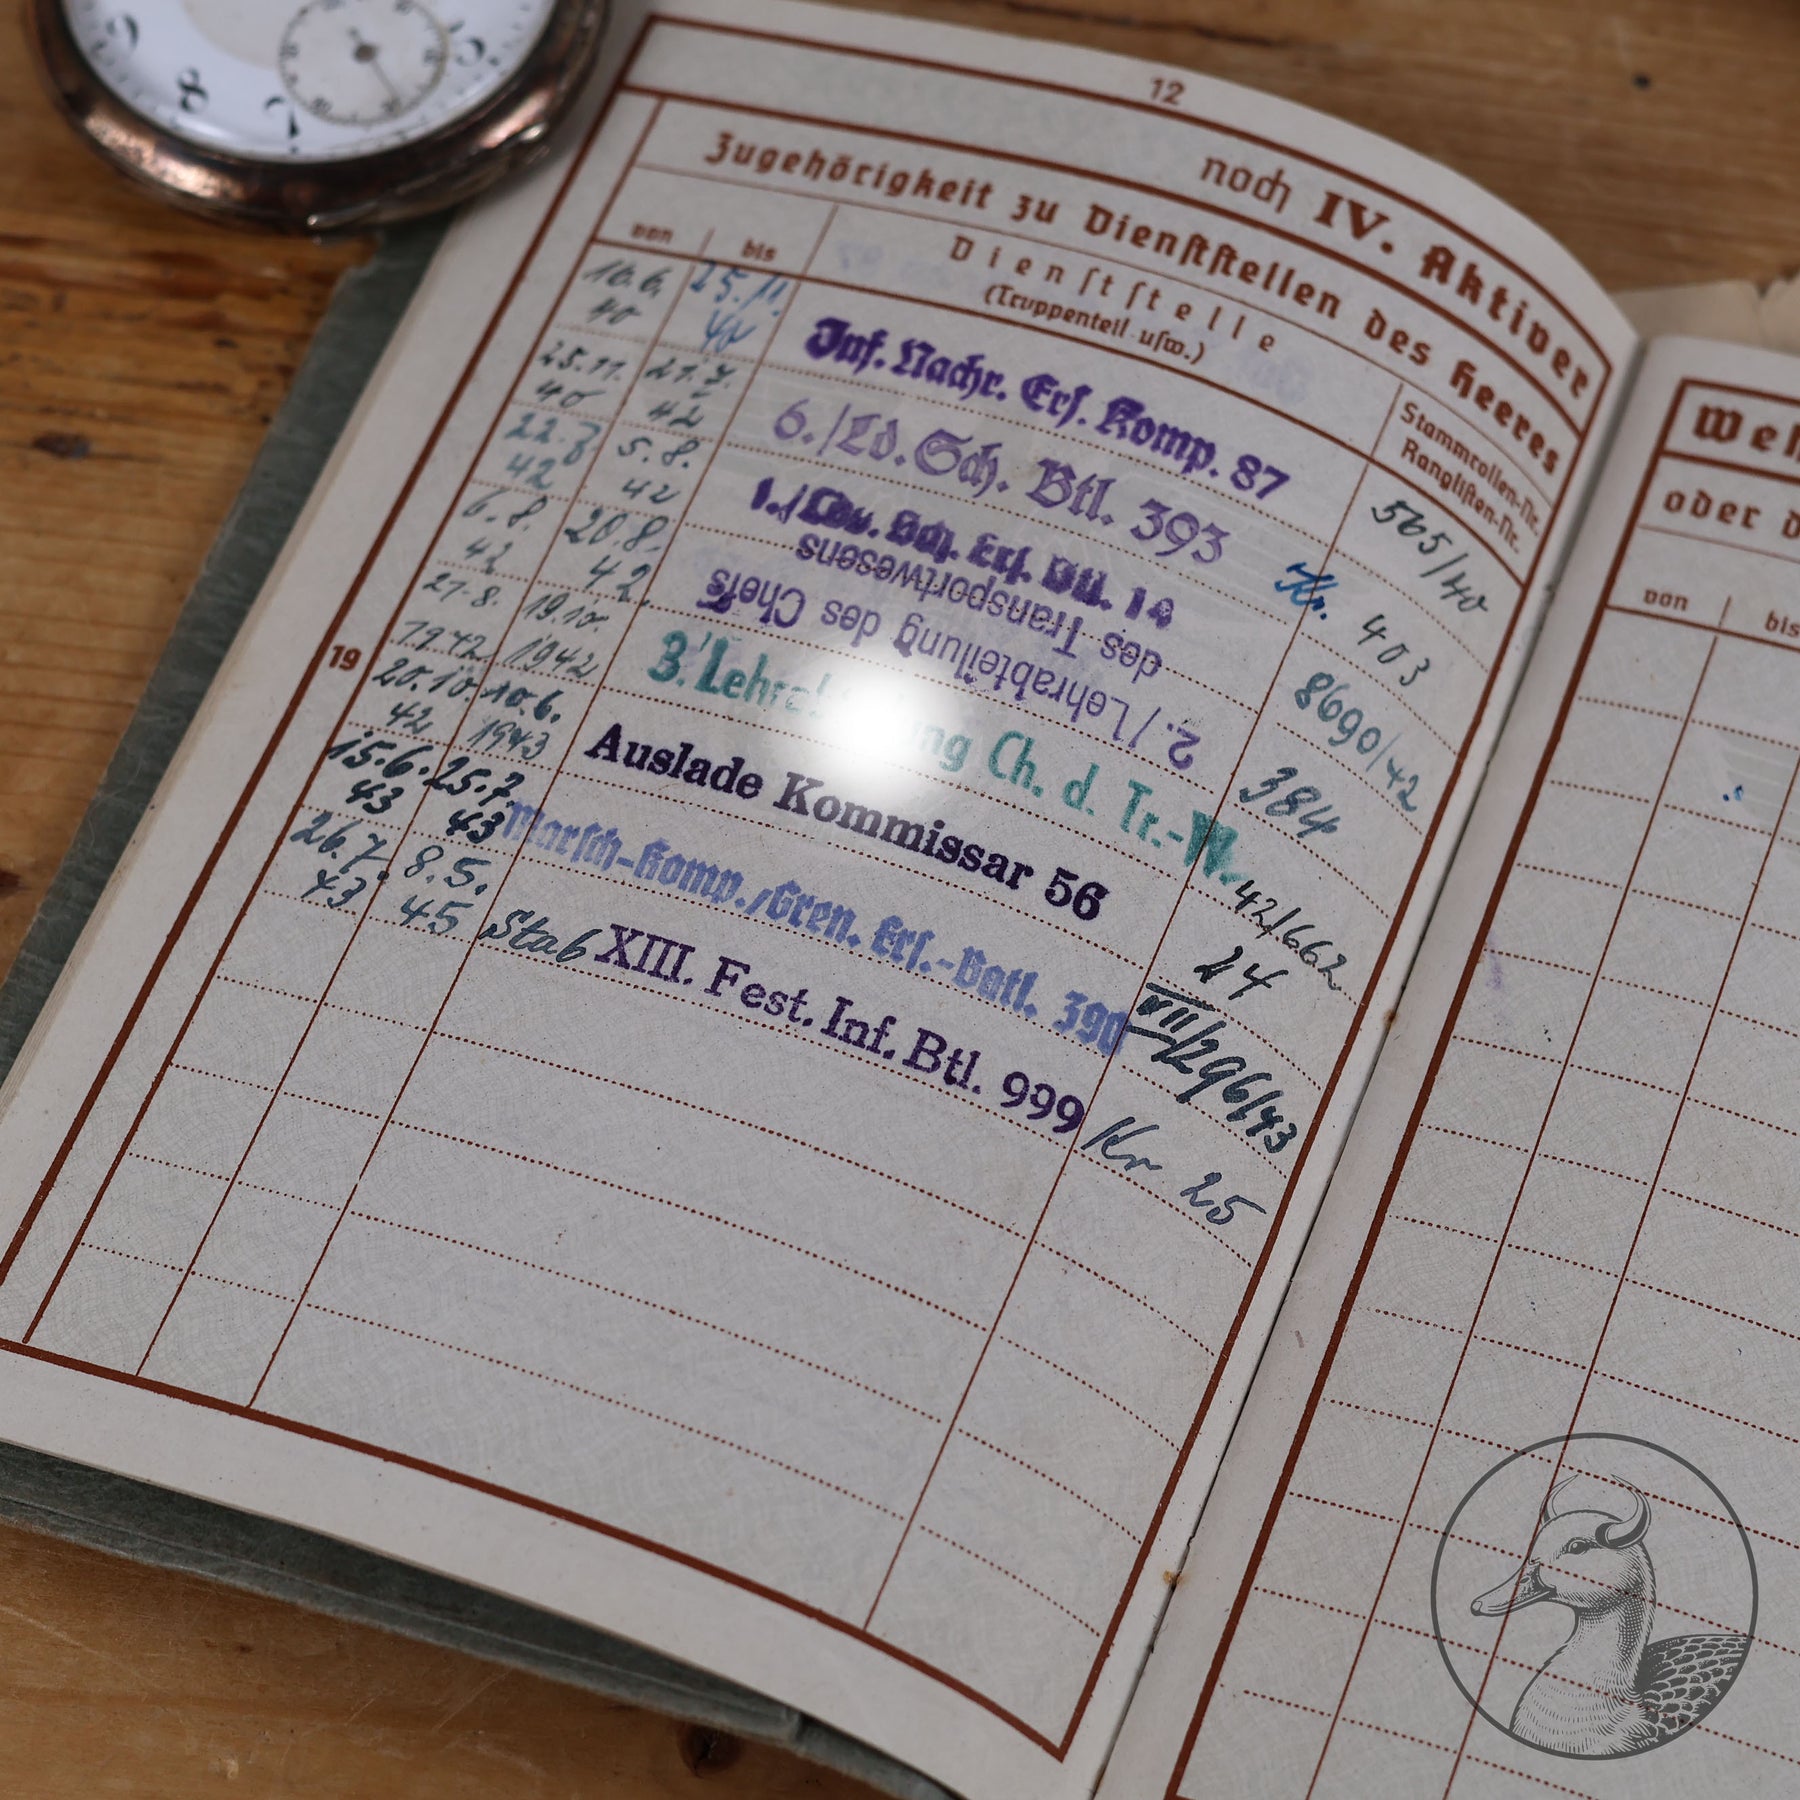 12
noch IV. Aktiver
Zugehörigkeit zu Dienststellen des Heeres
von bis Dienststelle
(Truppenteil usw.)
Stammrollen-Nr.
Ranglisten-Nr.
19
10.6. 40 25.11. 40 Inf. Nachr. Ers. Komp. 87 565/40
25.11. 40 21.7. 42 6./Ld. Sch. Btl. 393 Kr. 403
22.7. 42 5.8. 42 1./Ldw. Sch. Ers. Btl. 14 8690/42
6.8. 42 20.8. 42. 2./Lehrabteilung des Chefs
des Transportwesens 384
21.8. 1942 19.10. 1942 3./ Ch. d. Tr.-W. 42/662
20.10. 42 10.6. 1943 Auslade Kommissar 56 24
15.6. 43 25.7. 43 Marsch-Komp./Gren. Ers.-Batl. 390 VII/296/43
26.7. 43 8.5. 45 Stab XIII. Fest. Inf. Btl. 999 Kr 25
oder
von